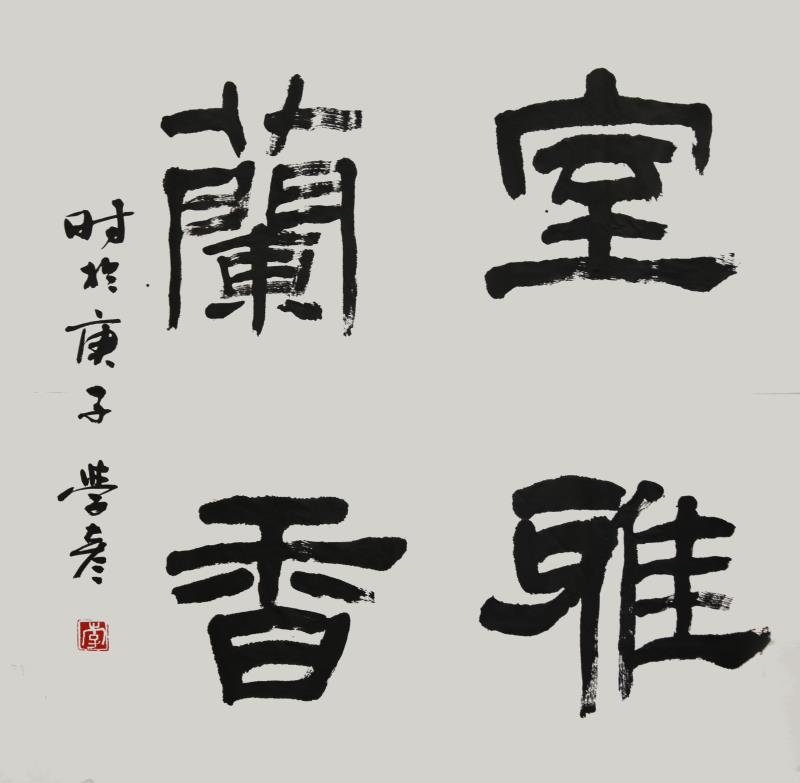 室雅
蘭香
时於庚子 学彦